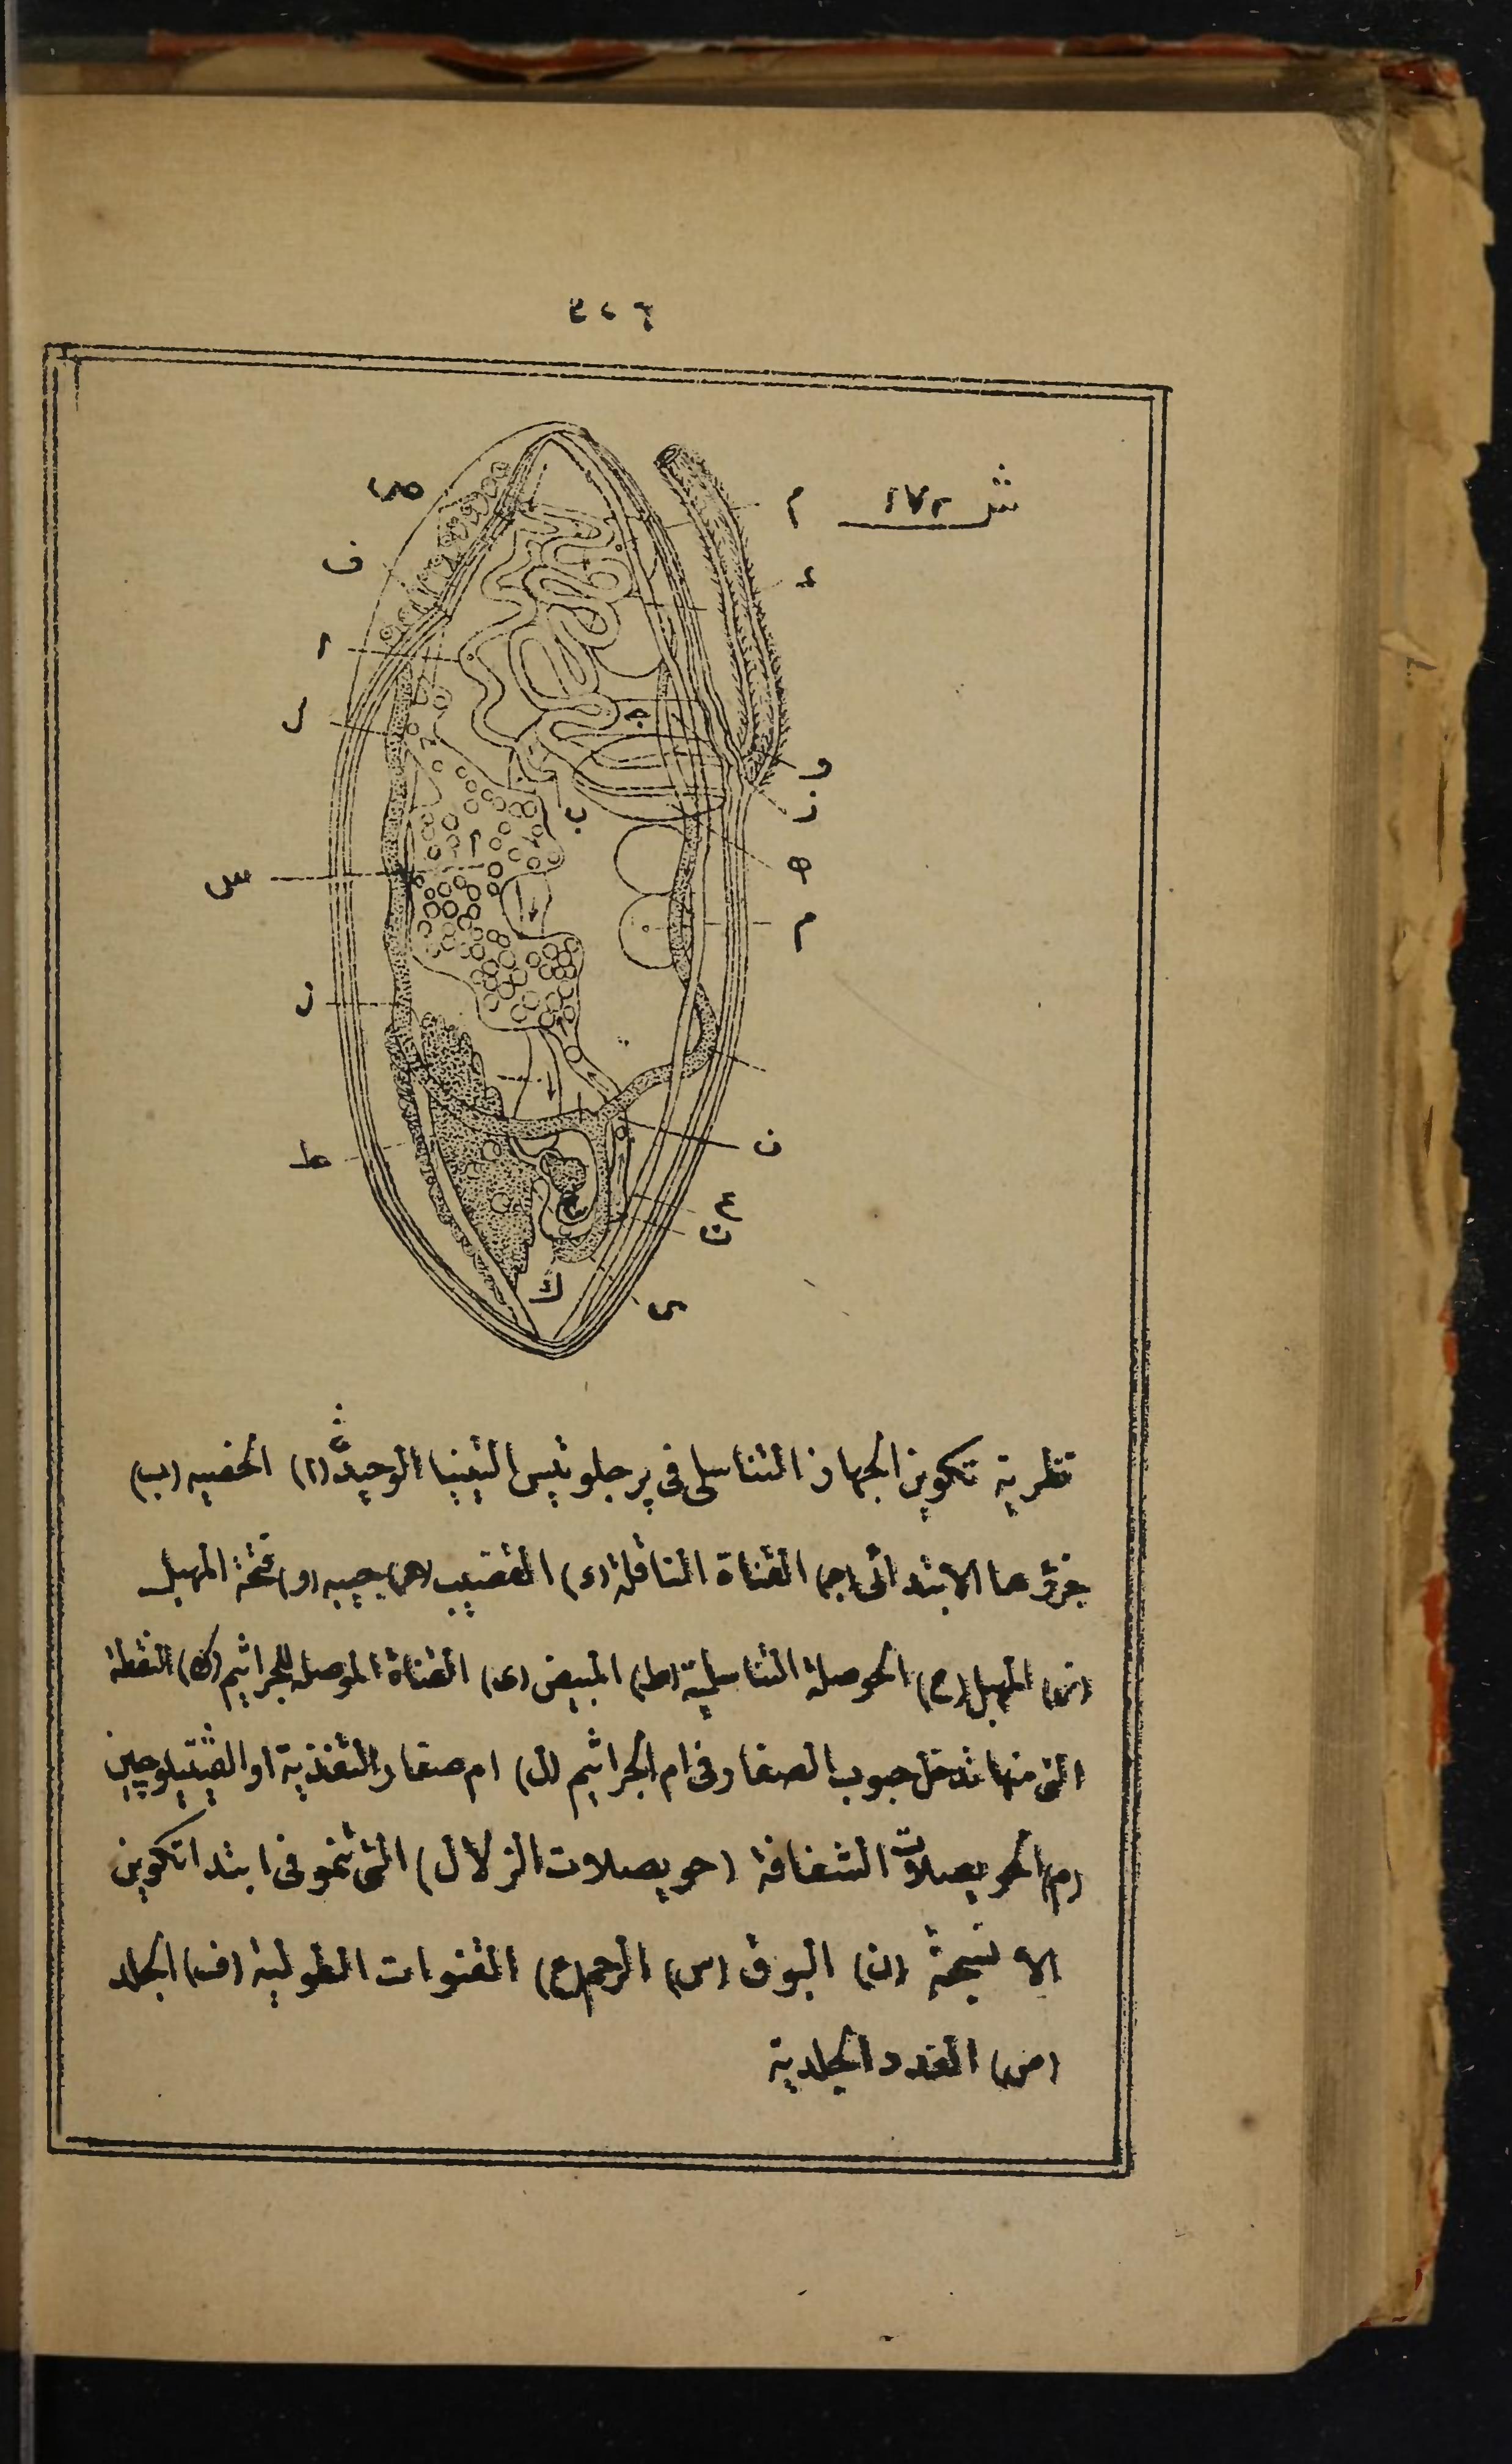 ٤٢٦
ش ١٧٢
ص
ف
م
ء
ا
ل
ج
و
ز
ب
ه
س
م
ر
ن
ط
ع
ن
ك
ى
نظرية تكوين الجهاز التناسلى فى پرجلوتيس التينيا الوحيدة (ا) الخصيه (ب)
جزؤها الابتدائى (ج) القناة الناقلة (د) القضيب (ه) جيبه (و) فتحة المهبل
(ز) المهبل (ح) الحوصلة التناسلية (ط) المبيض (ى) القناة الموصلة للجراثيم (ك) النقطة
التى منها تدخل حبوب الصفار فى ام الجراثيم (ل) ام صفار التغذية او الڤيتيلوجين
(م) الحويصلات الشفافة (حويصلات الزلال) التى تنمو فى ابتدا تكوين
الانسجة (ن) البوق (س) الرحم (ع) القنوات الطولية (ف) الجلد
(ص) الغدد الجلدية